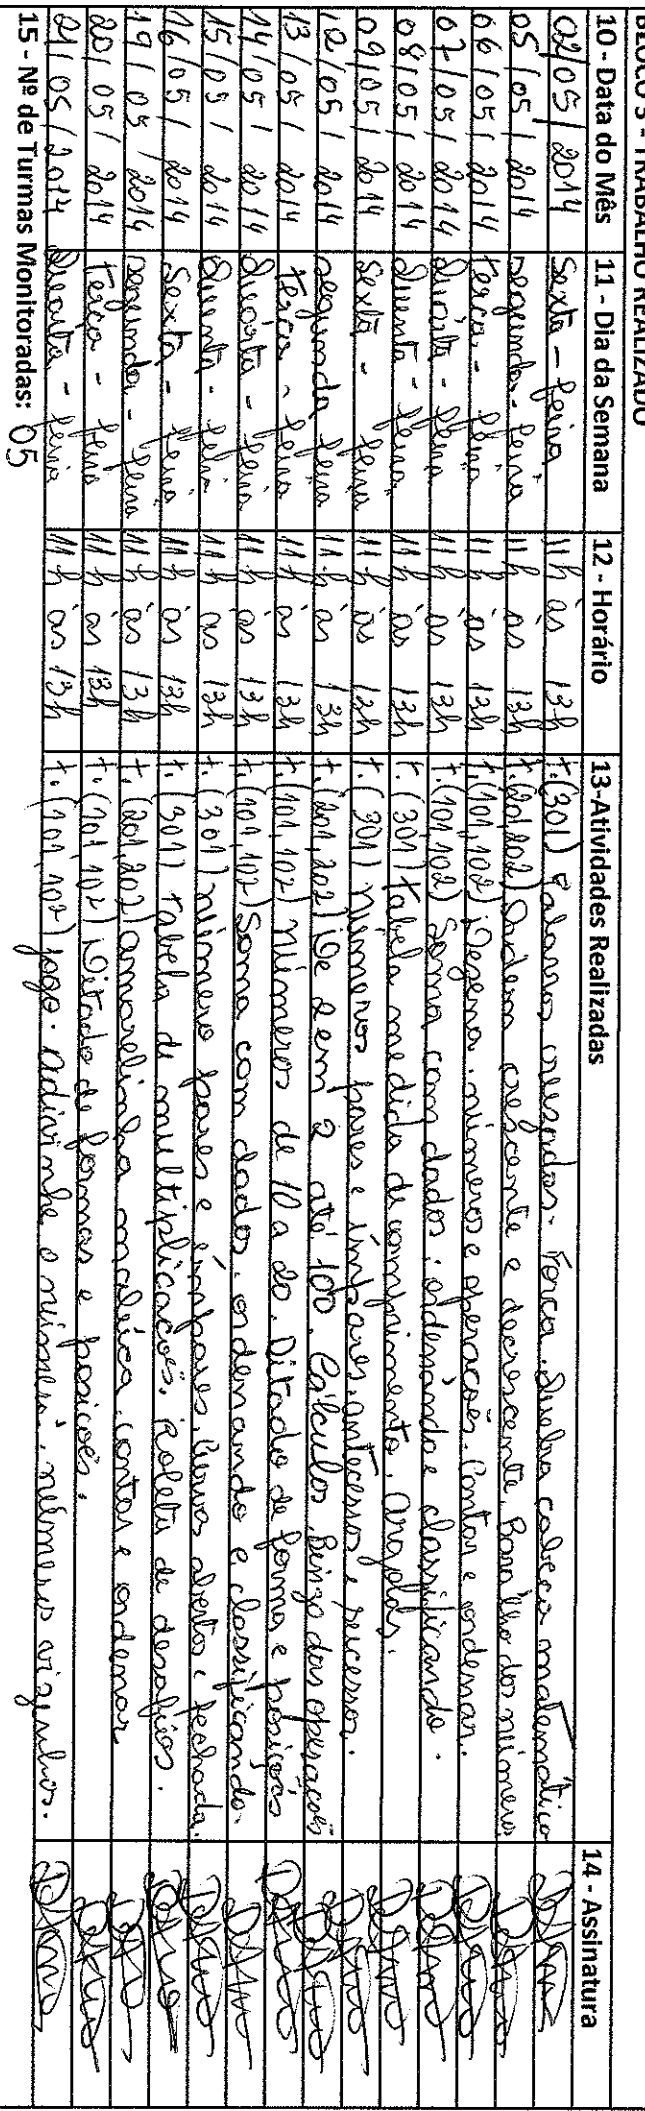 BLOCO 3 - TRABALHO REALIZADO
10 - Data do Mês 11 - Dia da Semana 12 - Horário 13-Atividades Realizadas 14 - Assinatura
02/05/2014 Sexta-feira 11h às 13h t.(301) Palavras cruzadas. Forca. Quebra cabeça matemático
05/05/2014 segunda-feira 11h às 13h t.(201,202) Ordem crescente e decrescente. Baralho dos números
06/05/2014 terça-feira 11h às 13h t.(101,102) Dezena. números e operações. Contar e ordenar.
07/05/2014 Quarta-feira 11h às 13h t.(101,102) Soma com dados; ordenando e classificando.
08/05/2014 Quinta-feira 11h às 13h t.(301) tabela medida de comprimento. Argolas.
09/05/2014 Sexta-feira 11h às 13h t.(301) números pares e ímpares, antecessor e sucessor.
12/05/2014 segunda feira 11h às 13h t.(201,202) De 2 em 2 até 100. Cálculos. Bingo das operações
13/05/2014 terça-feira 11h às 13h t.(101,102) números de 10 a 20. Ditado de forma e posições
14/05/2014 Quarta-feira 11h às 13h t.(101,102) Soma com dados, ordenando e classificando.
15/05/2014 Quinta-feira 11h às 13h t.(301) número pares e ímpares. Curvas abertas e fechada.
16/05/2014 Sexta-feira 11h às 13h t.(301) tabela de multiplicações. roleta de desafios.
19/05/2014 segunda-feira 11h às 13h t.(201,202) amarelinha maluca, contar e ordenar
20/05/2014 terça-feira 11h às 13h t.(101,102) Ditado de formas e posições.
21/05/2014 Quarta-feira 11h às 13h t.(101,102) jogo. adivinhe o número, números vizinhos.
15 - Nº de Turmas Monitoradas: 05